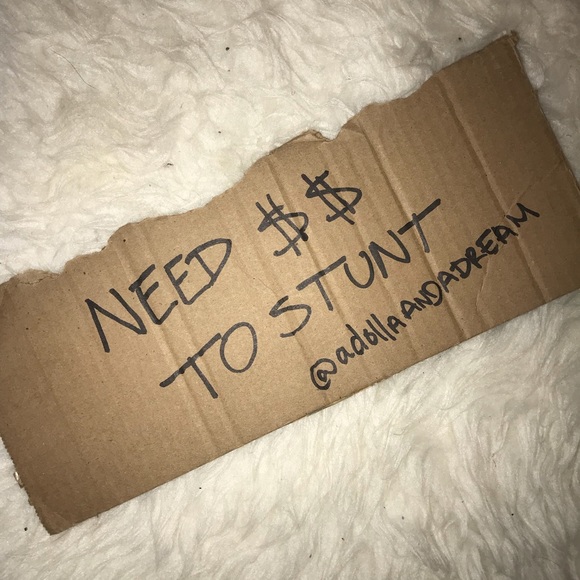 NEED $$
TO STUNT
@adollaANDADREAM